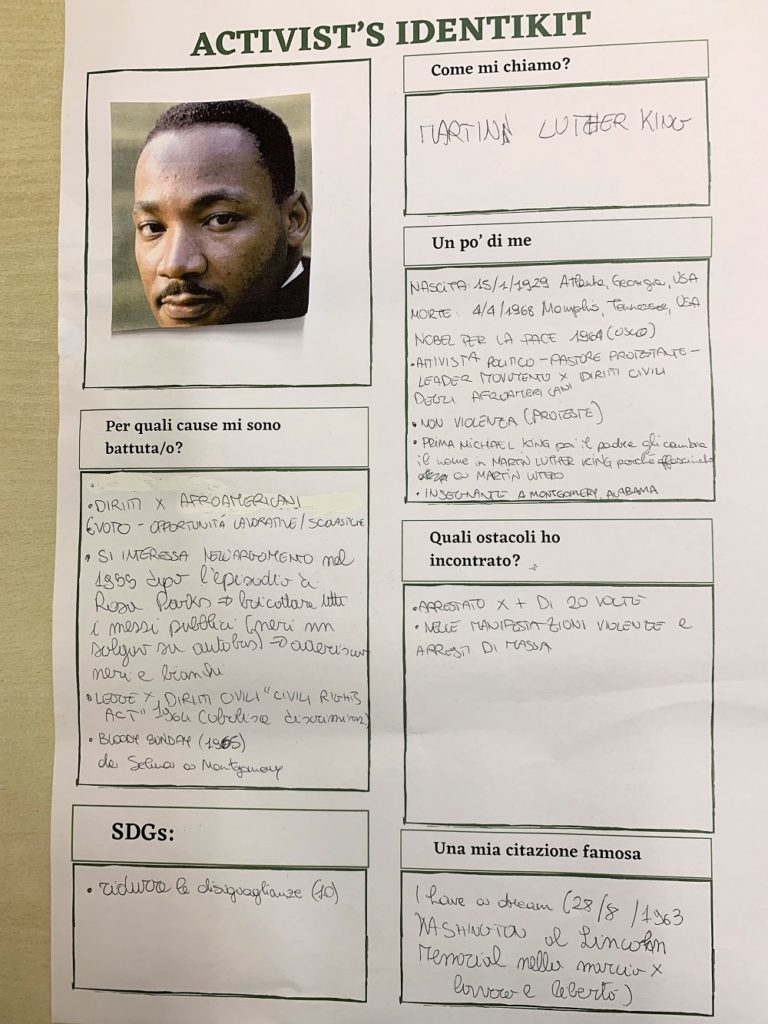 ACTIVIST'S IDENTIKIT
Come mi chiamo?
MARTIN LUTHER KING
Un po' di me
NASCITA: 15/1/1929 Atlanta, Georgia, USA
MORTE: 4/4/1968 Memphis, Tennessee, USA
NOBEL PER LA PACE 1964 (OSLO)
• ATTIVISTA POLITICO - PASTORE PROTESTANTE -
LEADER MOVIMENTO X DIRITTI CIVILI
DEGLI AFROAMERICANI
• NON VIOLENZA (PROTESTE)
• PRIMA MICHAEL KING poi il padre gli cambia
il nome in MARTIN LUTHER KING perché affascinato
da MARTIN LUTERO
• INSEGNANTE A MONTGOMERY, ALABAMA
Per quali cause mi sono
battuta/o?
• DIRITTI X AFROAMERICANI
VOTO - OPPORTUNITÀ LAVORATIVE/SCOLASTICHE
• SI INTERESSA NELL'ARGOMENTO nel
1955 dopo l'episodio di
Rosa Parks → boicottare tutti
i mezzi pubblici (neri non
salgono su autobus) → aderiscono
neri e bianchi
• LEGGE X DIRITTI CIVILI "CIVIL RIGHTS
ACT" 1964 (abolisce discriminaz)
• BLOODY SUNDAY (1965)
da Selma a Montgomery
Quali ostacoli ho
incontrato?
• ARRESTATO X + DI 20 VOLTE
• NELLE MANIFESTAZIONI VIOLENZE e
ARRESTI DI MASSA
SDGs:
• ridurre le disuguaglianze (10)
Una mia citazione famosa
I have a dream (28/8/1963
WASHINGTON al Lincoln
Memorial nella marcia x
lavoro e libertà)